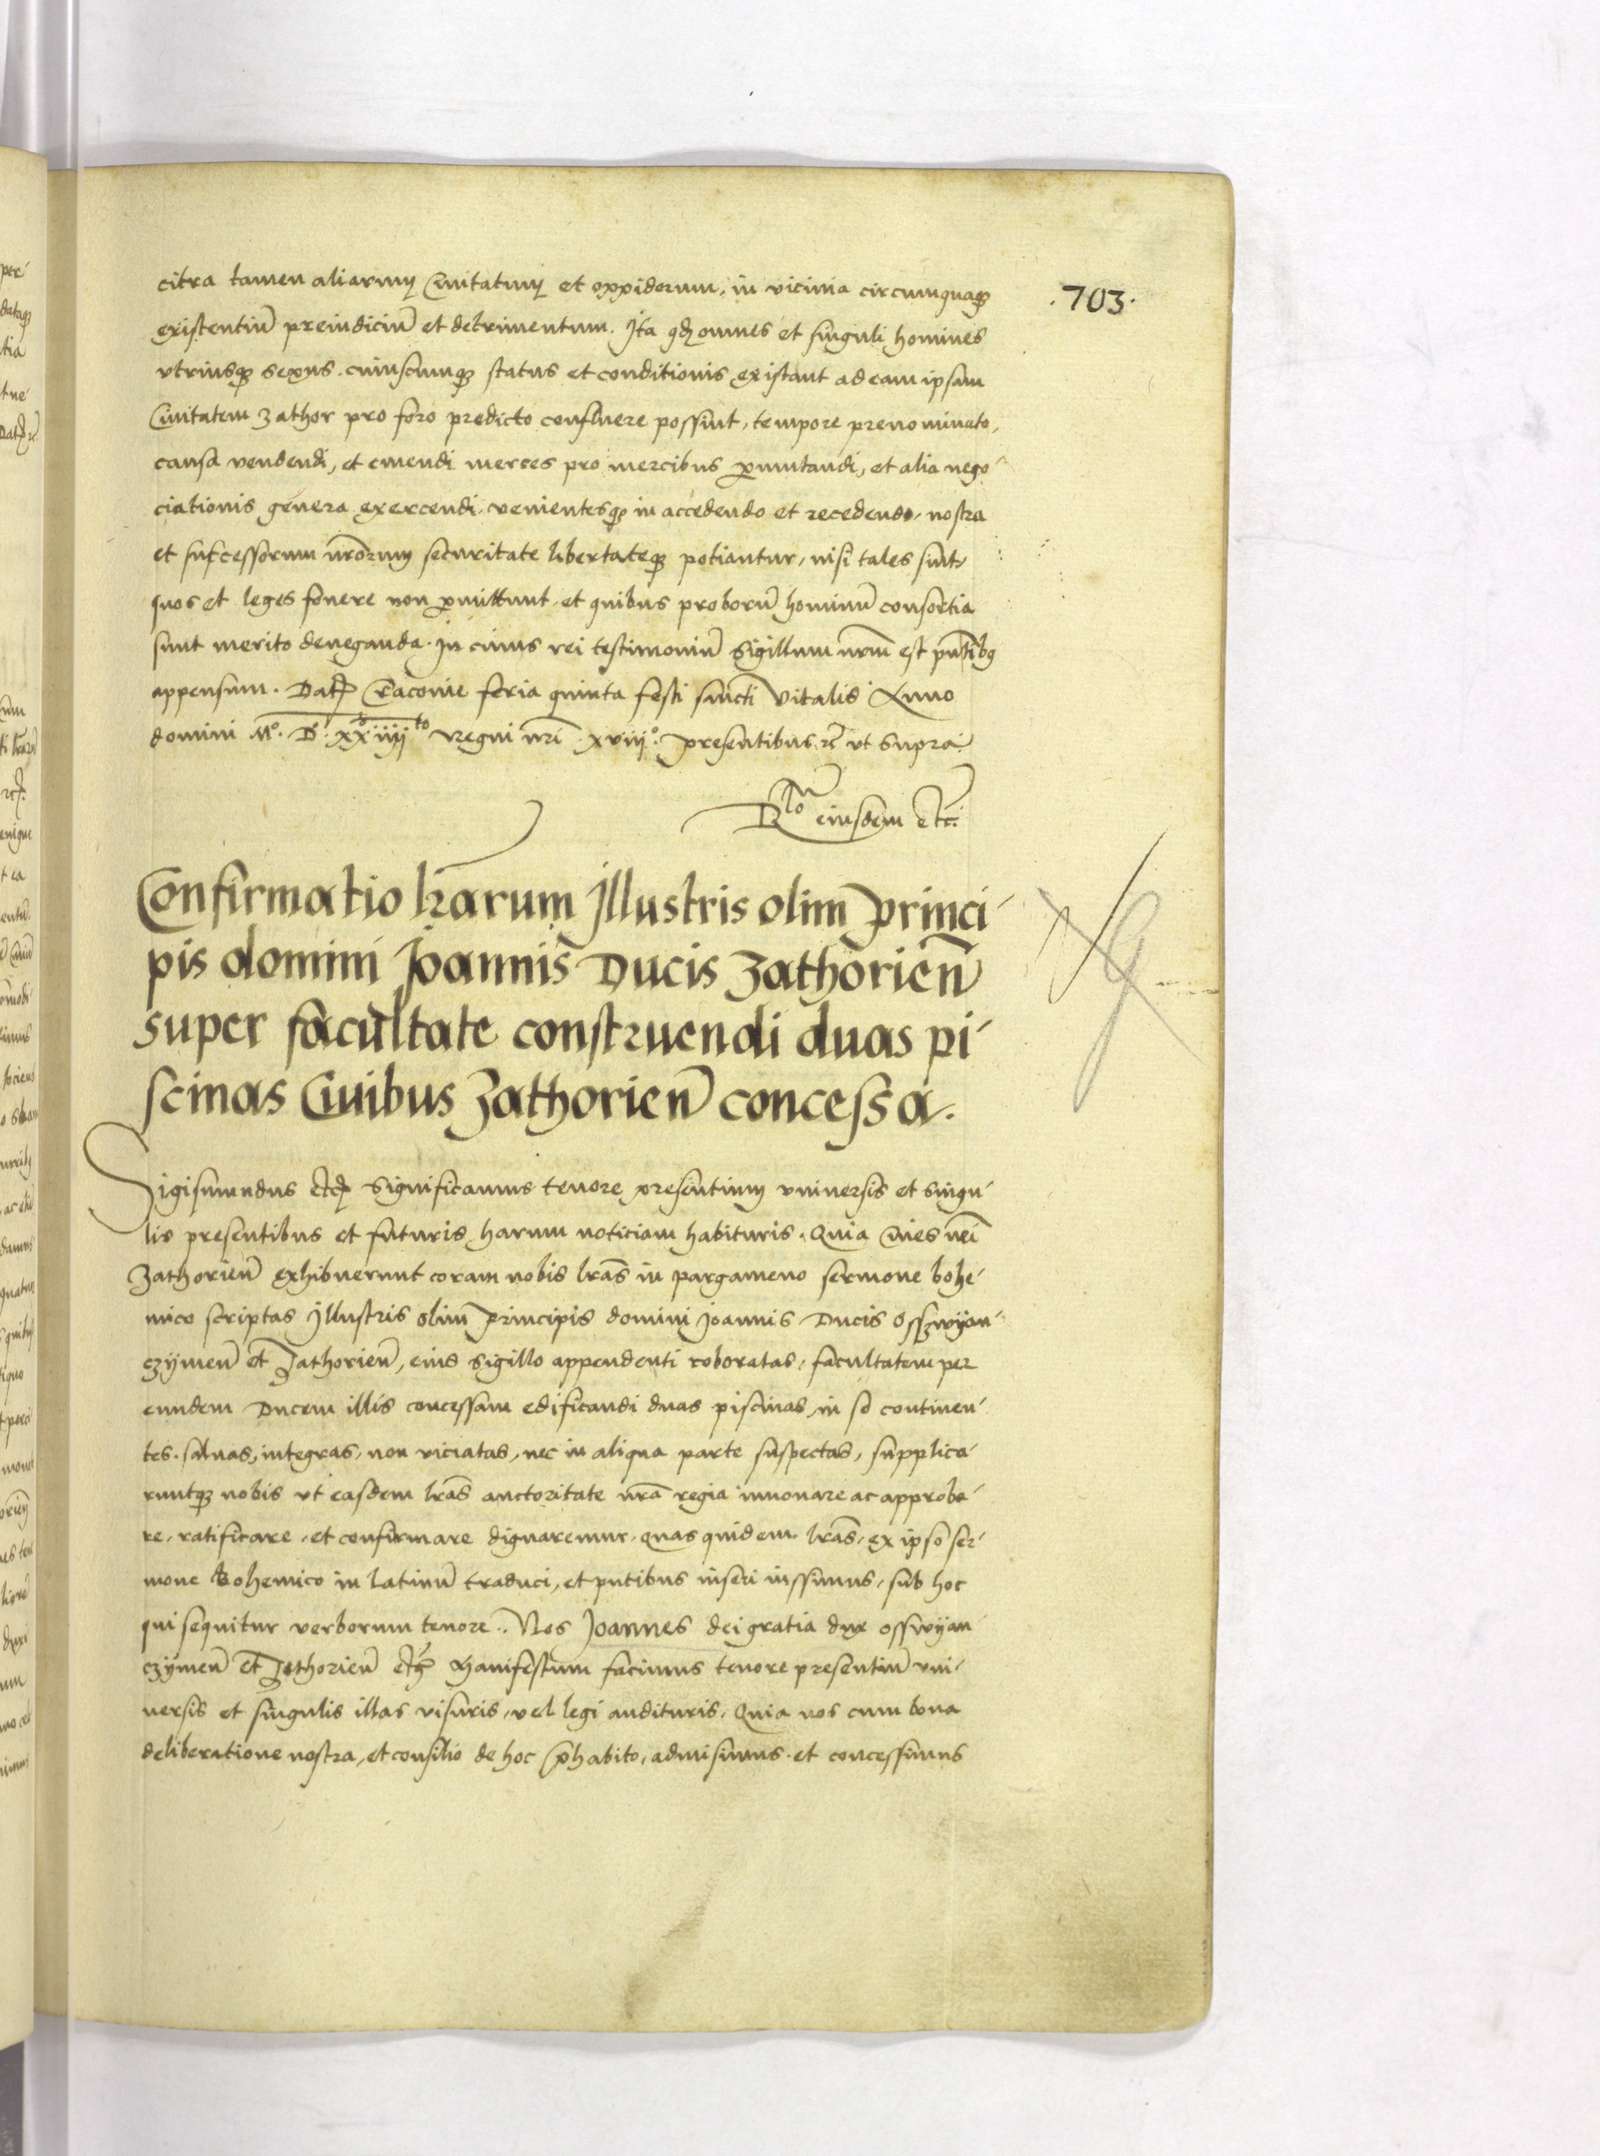 .703.
citra tamen aliarum Civitatum et oppidorum, in vicinia circumquaque
existentiu̅ preiudiciu̅ et detrimentum. Ita qd omnes et singuli homines
vtriusque sexus. cuiuscunque status et conditionis existant ad eam ipsam
Civitatem Zathor pro foro predicto confluere possint, tempore prenominato,
causa vendendi, et emendi merces pro mercibus p̱mutandi, et alia nego-
ciationis genera exercendi, venientesque in accedendo et recedendo, nostra
et successorum nr̅orum securitate libertateque potiantur, nisi tales sint,
quos et leges fouere non p̱mittunt, et quibus proboru̅ hominu̅ consortia
sunt merito deneganda. In cuius rei testimoniu̅ Sigillum nr̅um est pn̅tibus
appensum. Dat̅ Cracouie feria quinta festi sancti Vitalis Anno
domini Mo. D. xxiiiito Regni nr̅i xviijo. presentibus etc̅ vt supra.
Rlo eiusdem etc.
Confirmatio lr̅arum Illustris olim princi-
pis domini Joannis Ducis Zathorien̅
super facultate construendi duas pi-
scinas Civibus Zathorien̅ concessa.
Sigismundus etc̅ Significamus tenore presentium vniuersis et singu-
lis presentibus et futuris, harum noticiam habituris. Quia Ciues nr̅i
Zathorien̅ exhibuerunt coram nobis lr̅as in pargameno sermone bohe-
mico scriptas Illustris olim principis domini Joannis Ducis Osszwyan-
czymen̅ et Zathorien̅, eius sigillo appendenti roboratas, facultatem per
eundem Ducem illis concessam edificandi duas piscinas, in se continen-
tes. saluas, integras, non viciatas, nec in aliqua parte suspectas, supplica-
runtque nobis vt easdem lr̅as auctoritate nr̅a regia innouare ac approba-
re, ratificare, et confirmare dignaremur, quas quidem lr̅as, ex ipso ser-
mone Bohemico in latinu̅ traduci, et pn̅tibus inseri iussimus, sub hoc
qui sequitur verborum tenore.. Nos Joannes dei gratia dux osswyan-
czymen̅ et Zathorien̅ etc̅ Manifestum facimus tenore presentiu̅ vni-
uersis et singulis illas visuris, vel legi audituris, Quia nos cum bona
deliberatione nostra, et consilio de hoc p̅habito, admisimus et concessimus